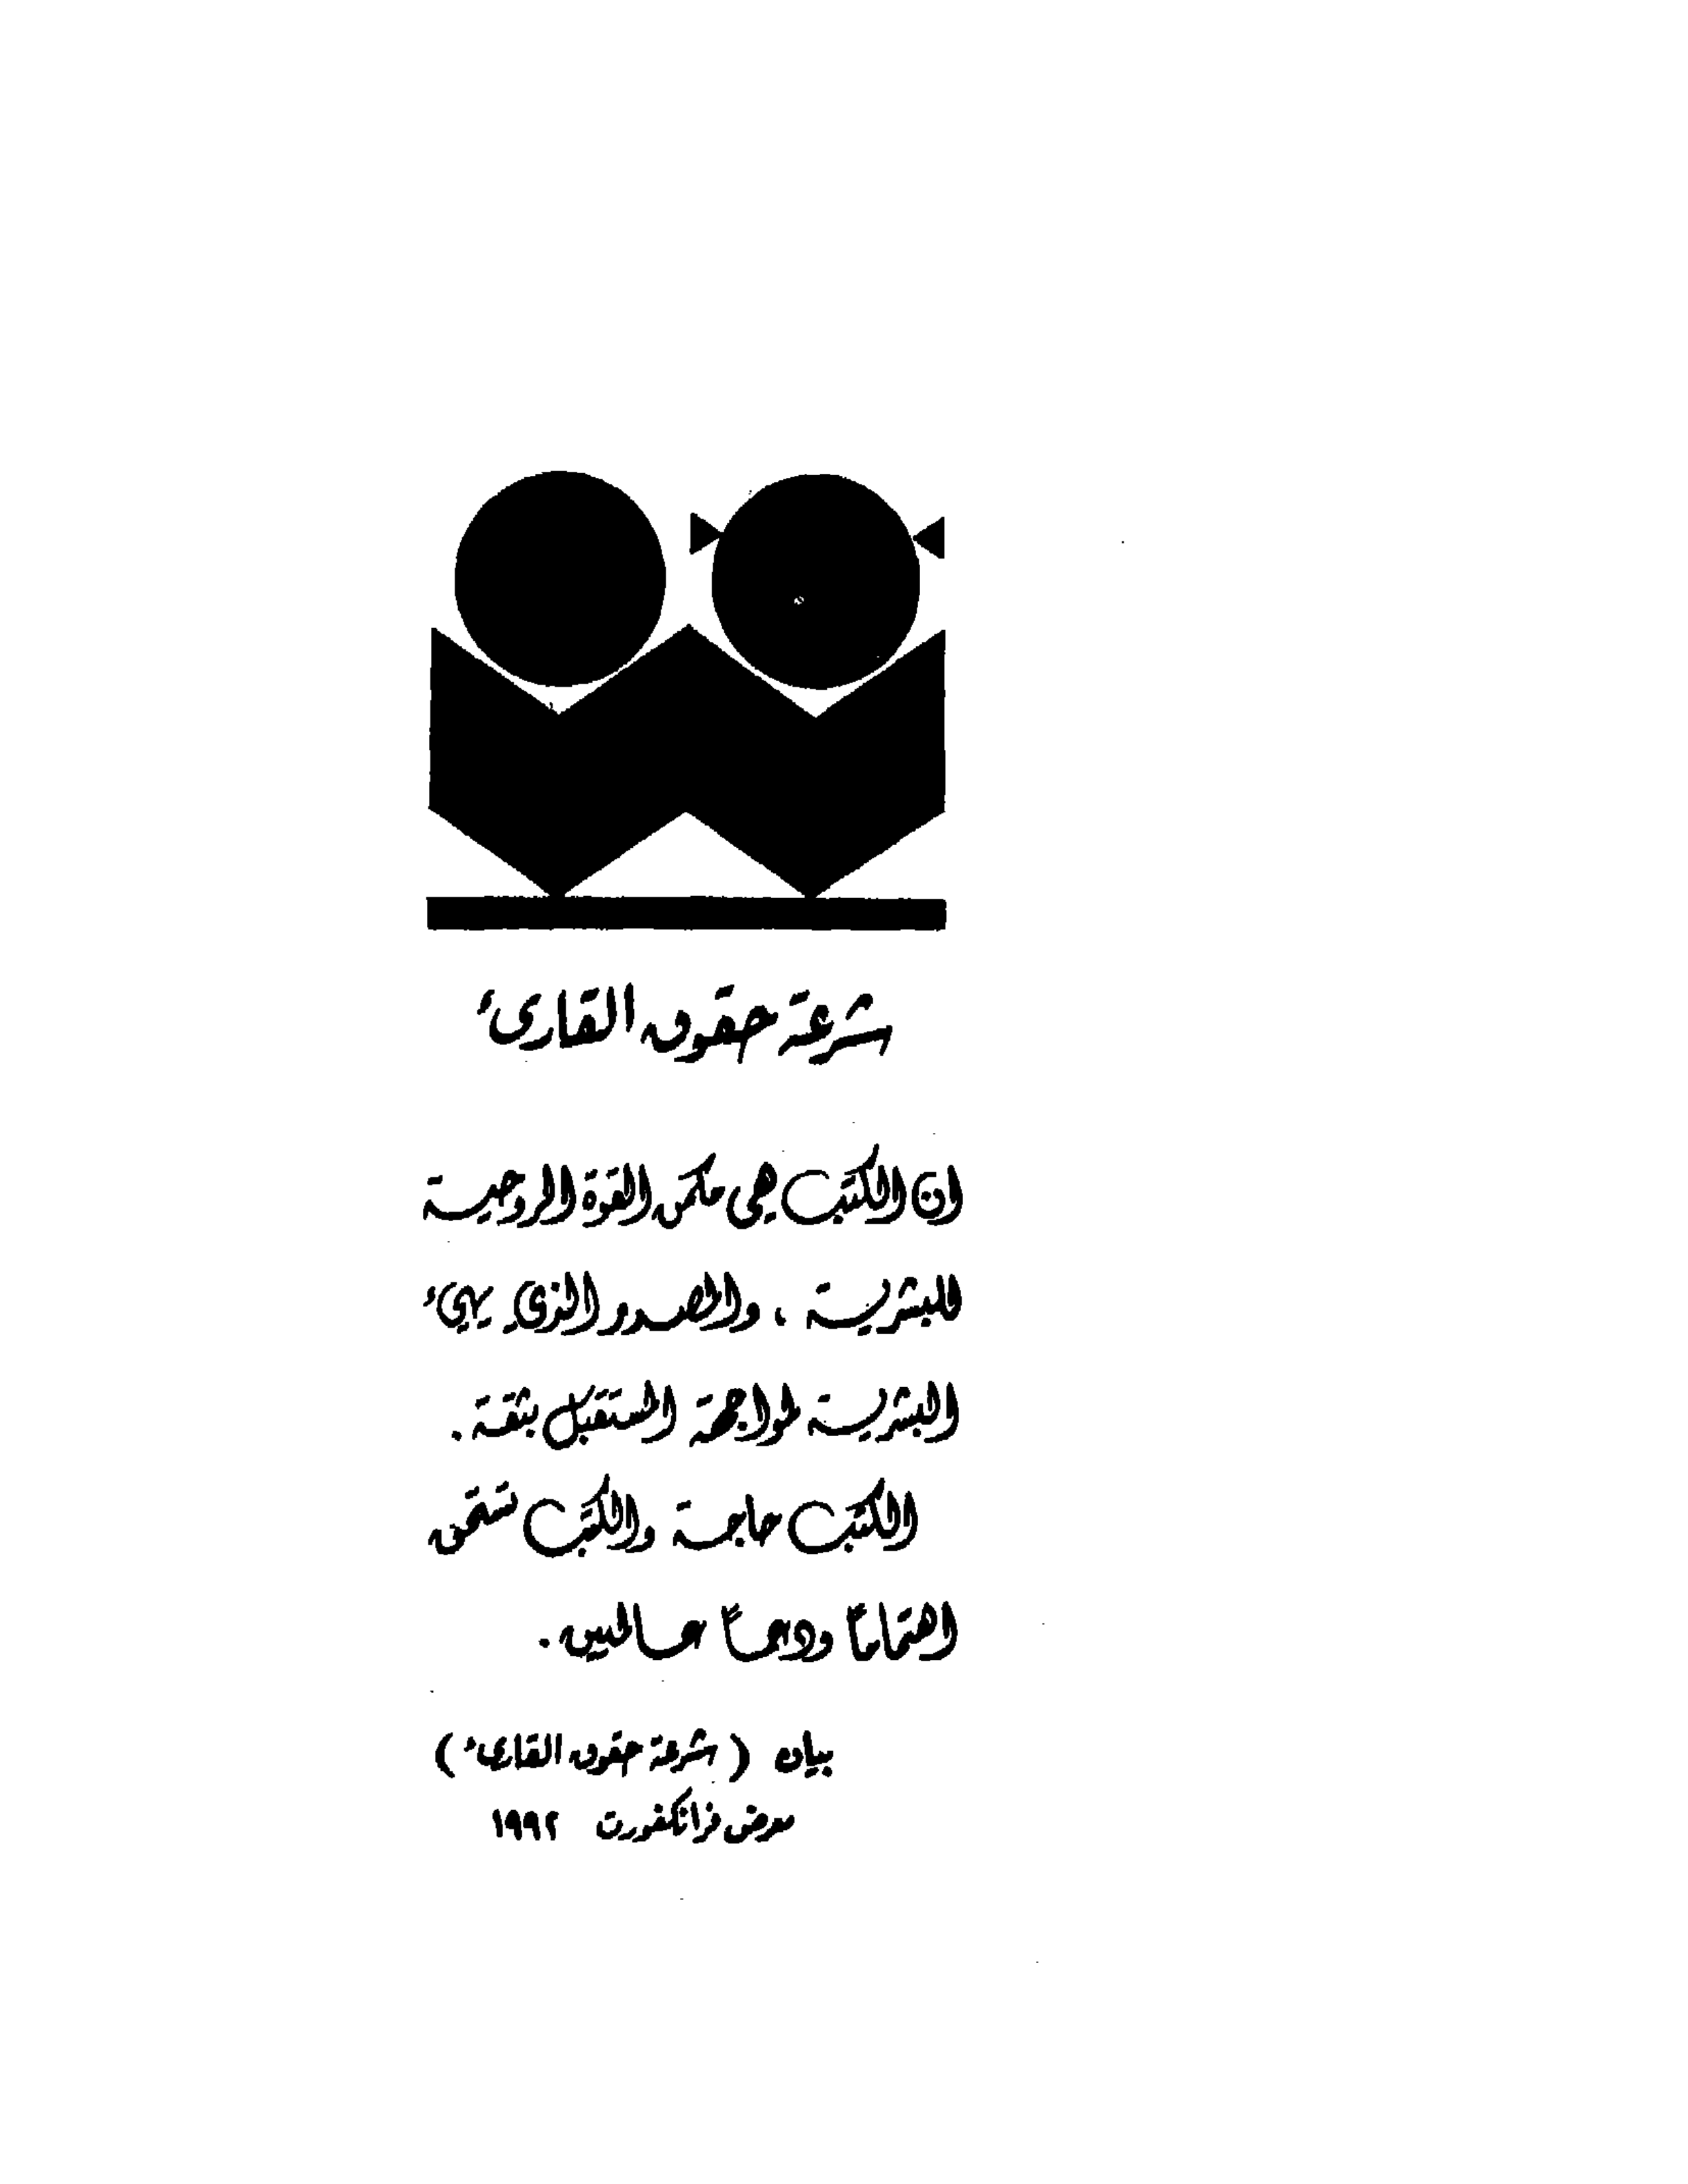 شرعة حقوق القارىء
ان الكتب هي مكمن القوة الروحية
للبشرية ، والمصدر الذي يهيء
البشرية لمواجهة المستقبل بثقة .
الكتب حاجة والكتب تستحق
اهتماماً ودعماً عالميين .
بيان ( شرعة حقوق القارىء )
معرض فرانكفورت ١٩٩٢